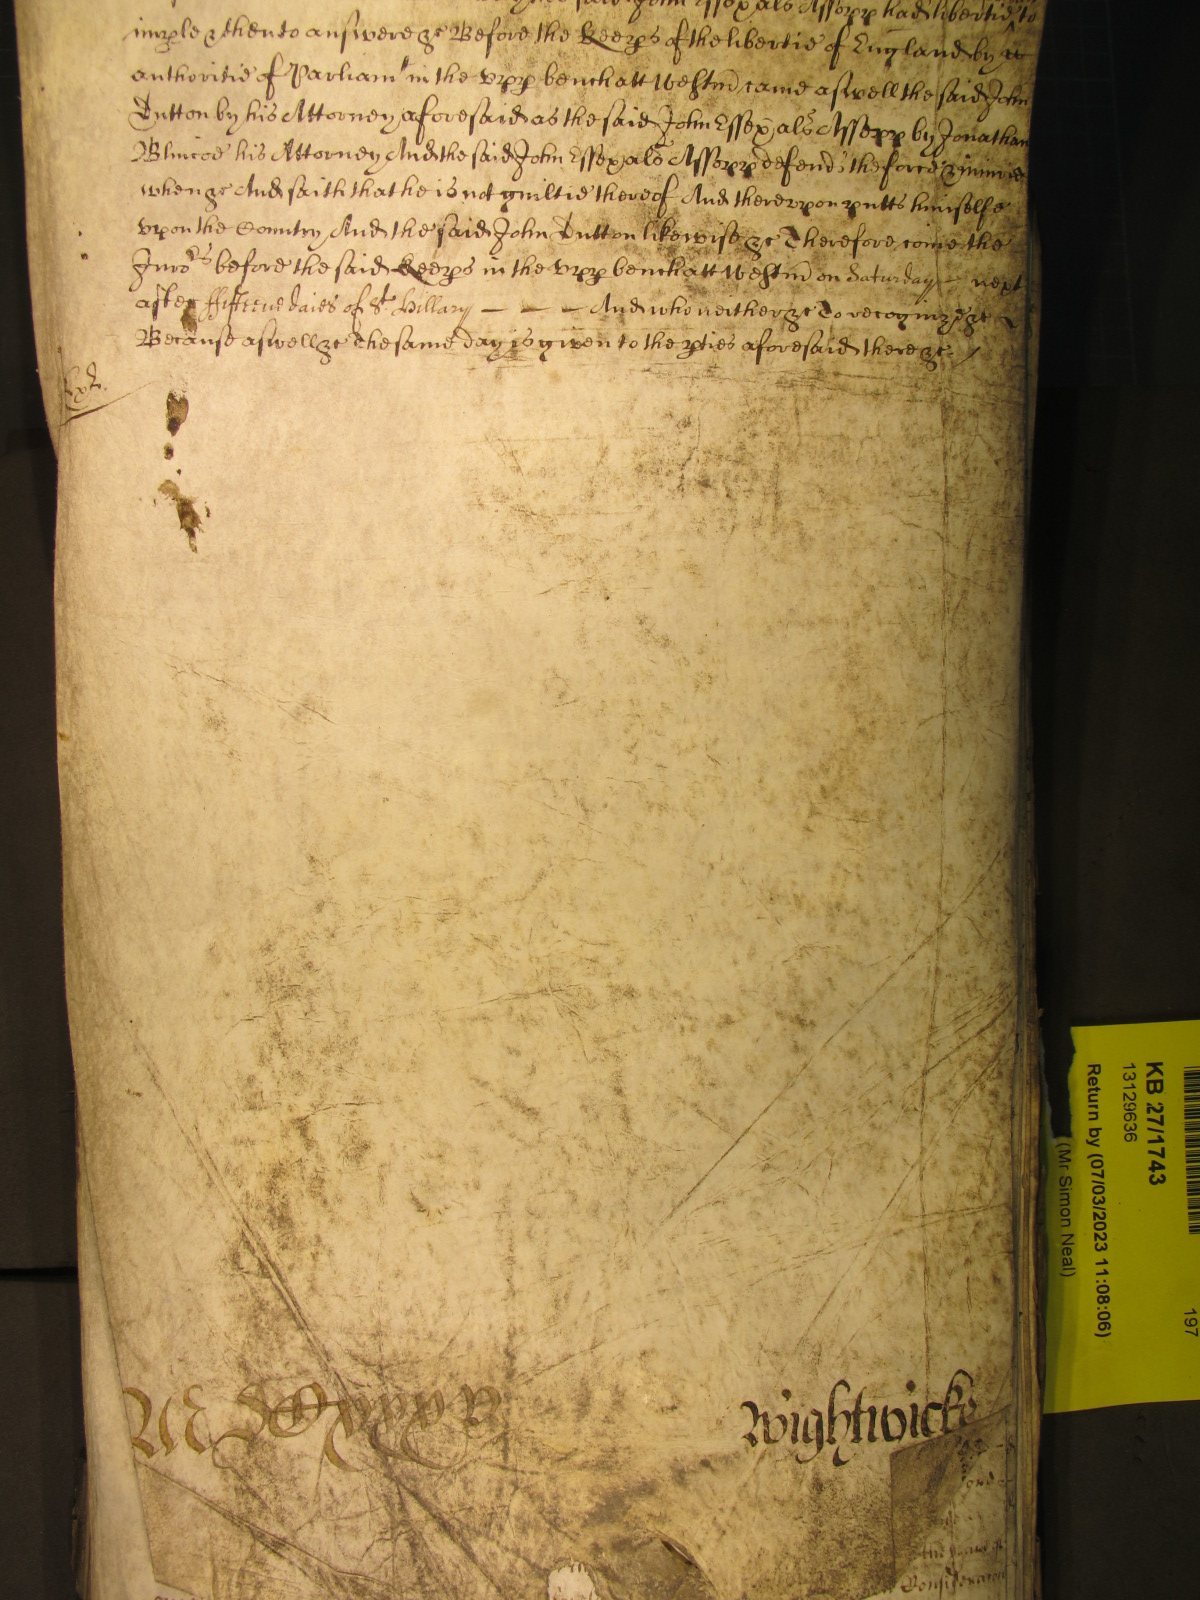 said John Essex als Assopp had libertie to
imple & then to answere &c Before the Keeps of the libertie of England by
authoritie of Parliamt in the Upp bench att Westm came aswell the said John
Dutton by his Attorney aforesaid as the said John Essex als Assopp by Jonathan
Blincoe his Attorney And the said John Essex als Assopp defends the force & iniurie
when &c And saith that he is not guiltie thereof And thereupon putts himselfe
upon the Country And the said John Dutton likewise &c Therefore come the
Juros before the said Keeps in the Upp bench att Westm on Saturday next
after ffifteene daies of St Hillary — — — And who neither &c To recognize &c
Because aswell &c The same day is given to the pties aforesaid there &c
Wightwicke
KB 27/1743
13129636
Return by (07/03/2023 11:08:06)
(Mr Simon Neal)
197